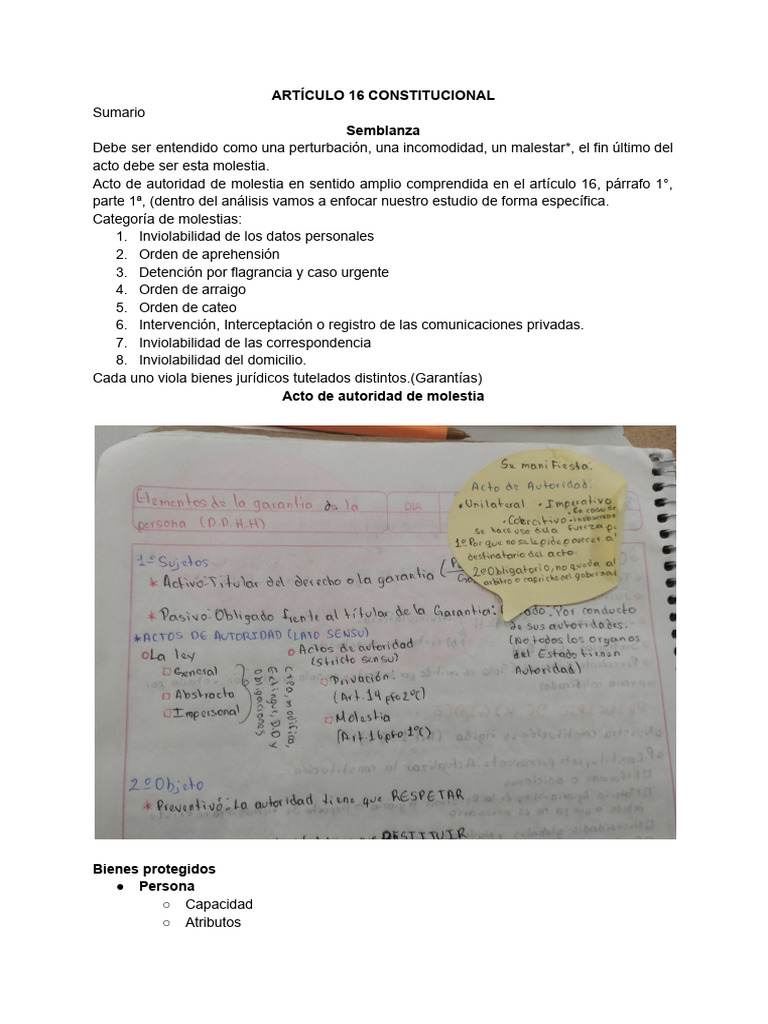 ARTÍCULO 16 CONSTITUCIONAL
Sumario
Semblanza
Debe ser entendido como una perturbación, una incomodidad, un malestar*, el fin último del
acto debe ser esta molestia.
Acto de autoridad de molestia en sentido amplio comprendida en el artículo 16, párrafo 1°,
parte 1ª, (dentro del análisis vamos a enfocar nuestro estudio de forma específica.
Categoría de molestias:
1. Inviolabilidad de los datos personales
2. Orden de aprehensión
3. Detención por flagrancia y caso urgente
4. Orden de arraigo
5. Orden de cateo
6. Intervención, Interceptación o registro de las comunicaciones privadas.
7. Inviolabilidad de las correspondencia
8. Inviolabilidad del domicilio.
Cada uno viola bienes jurídicos tutelados distintos.(Garantías)
Acto de autoridad de molestia
Elementos de la garantía de la
persona (D.D.H.H)
DIA
Se manifiesta:
Acto de Autoridad.
• Unilateral • Imperativo
• Coercitivo
• En caso de
se hace uso de la fuerza p.
1º Por que no se le pide parecer al
destinatario del acto.
2º Obligatorio, no queda al
arbitro o capricho del
1º Sujetos
* Activo: Titular del derecho o la garantía
* Pasivo: Obligado frente al títular de la Garantía:
Por conducto
de sus autoridades.
(No todos los Organos
del Estado tienen
Autoridad)
*ACTOS DE AUTORIDAD (LATO SENSU)
La ley
General
Abstracto
Impersonal
Crea, modifica,
Extingue, D.D y
Obligaciones
Actos de autoridad
(stricto sensu)
Privación:
(Art. 14 pfo 2ºC)
Molestia
(Art. 16 pfo 1ºC)
2º Objeto
* Preventivó: La autoridad tiene que RESPETAR
RESTITUIR
Bienes protegidos
● Persona
○ Capacidad
○ Atributos